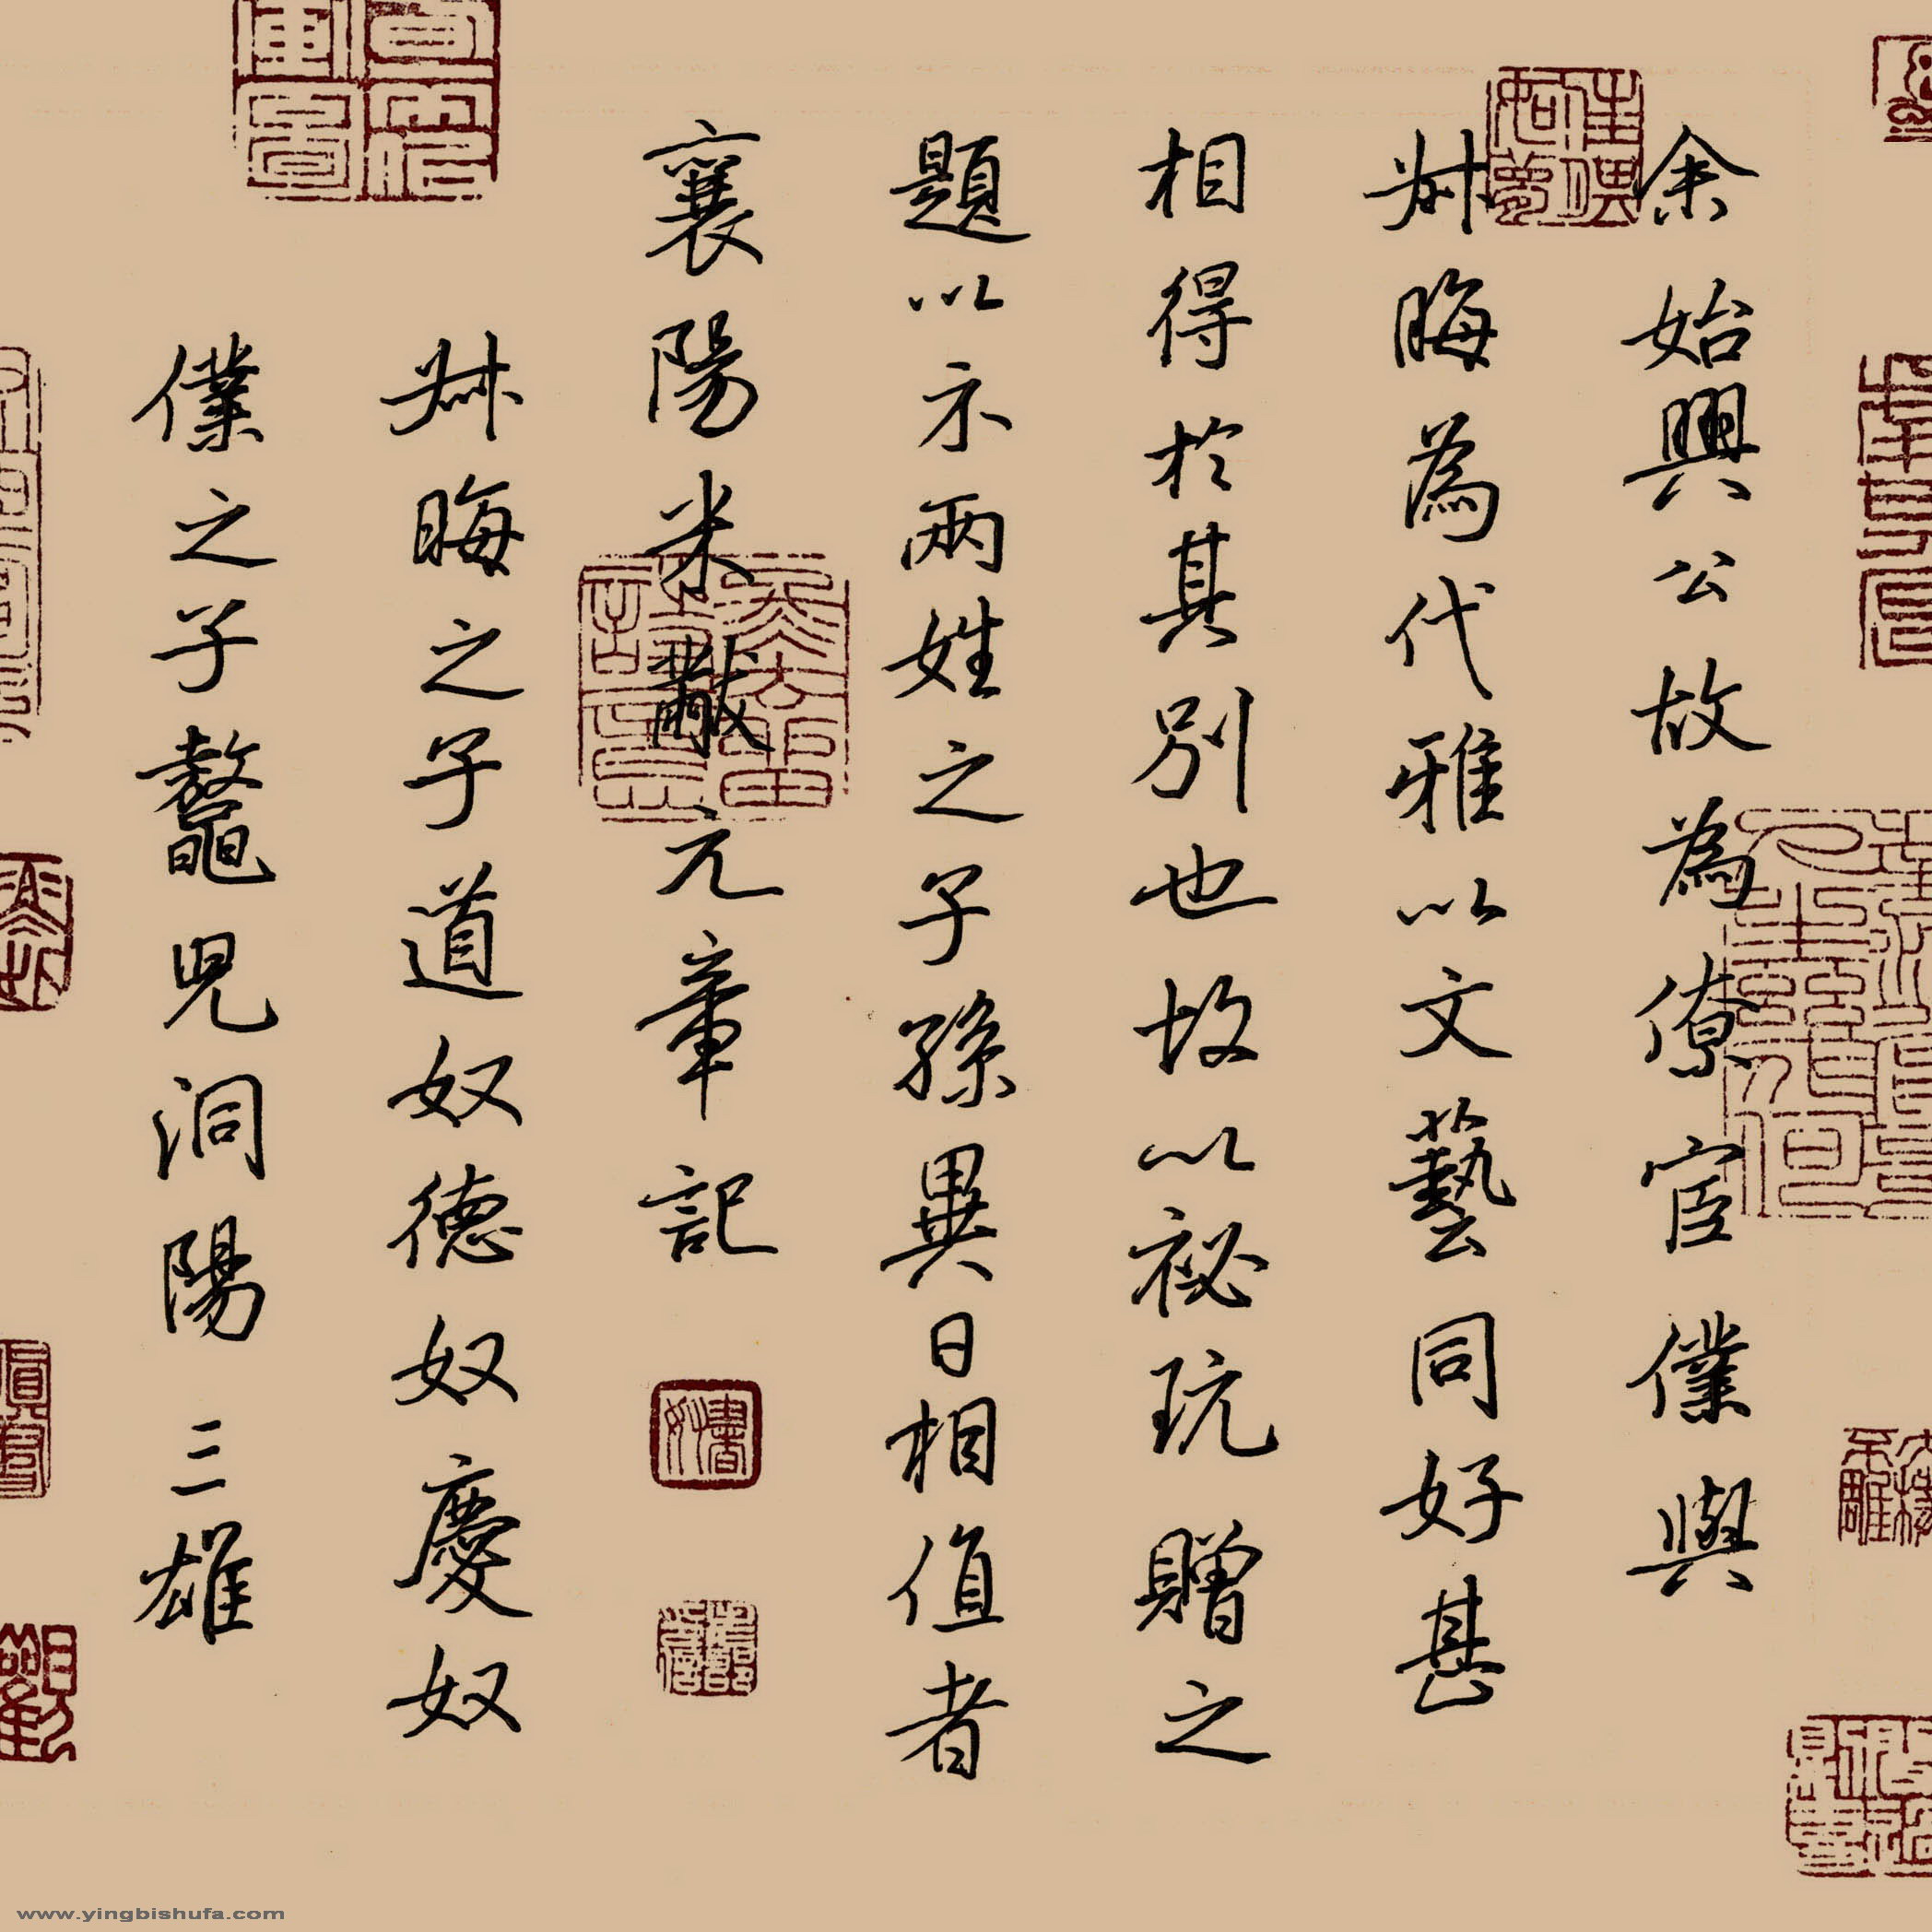 余始興公故為僚宦僕與
叔晦為代雅以文藝同好甚
相得於其別也故以祕玩贈之
題以示兩姓之子孫異日相值者
襄陽米黻元章記
叔晦之子道奴德奴慶奴
僕之子鼇兒洞陽三雄
www.yingbishufa.com